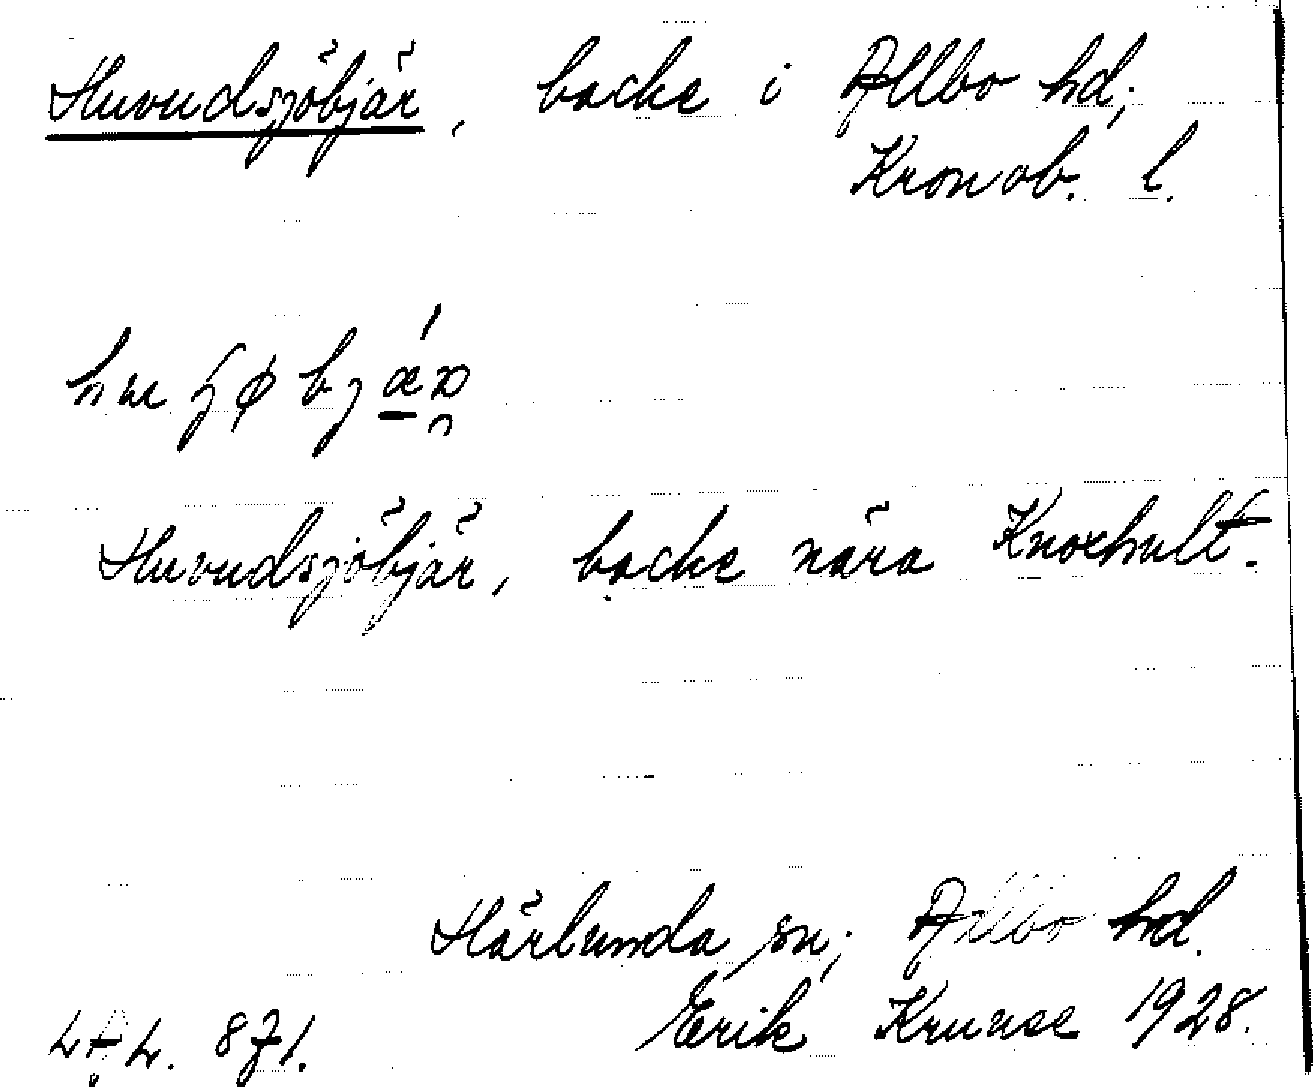 Huvudsjöbjär, backe i Allbo hd;
Kronob. l.
Huvudsjöbjär, backe nära Knoxhult.
Härlunda sn; Allbo hd.
LAL. 871. Erik Kruuse 1928.